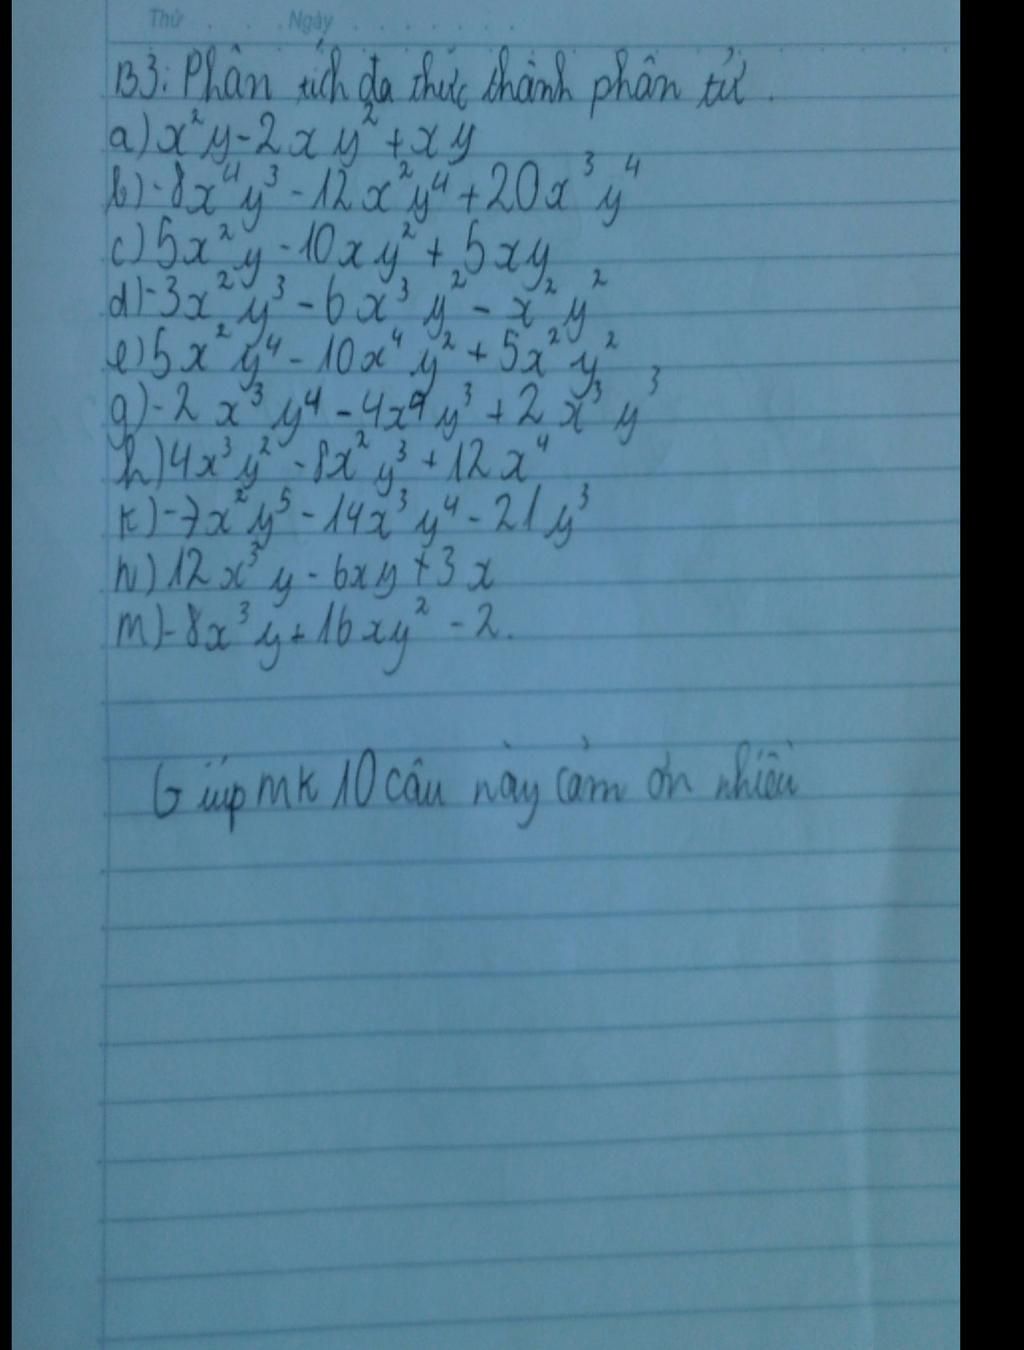 Thứ . . . . Ngày . . . . . . .
B3: Phân tích đa thức thành phân tử.
a) x²y - 2xy² + xy
b) -8x⁴y³ - 12x²y⁴ + 20x³y⁴
c) 5x²y - 10xy² + 5xy
d) -3x²y³ - 6x³y² - x²y²
e) 5x²y⁴ - 10x⁴y² + 5x²y²
g) -2x³y⁴ - 4x⁴y³ + 2x³y³
h) 4x³y² - 8x²y³ + 12x⁴
k) -7x²y⁵ - 14x³y⁴ - 21y³
n) 12x³y - 6xy + 3x
m) -8x³y + 16xy² - 2.
Giúp mk 10 câu này cảm ơn nhiều